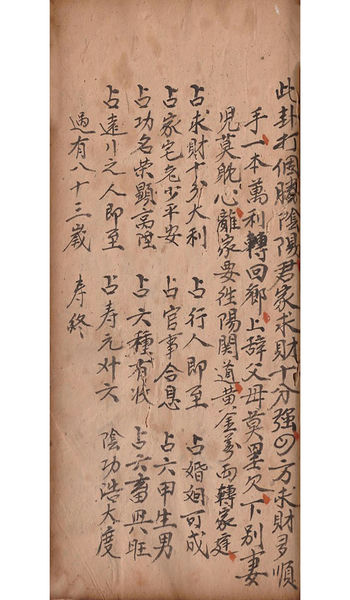 此卦打個勝陰陽君家求財十分強四方求財多順
手一本萬利轉回鄉上辞父母莫罣欠下別妻
児莫耽心離家要徃陽関道黄金万両轉家庭
占求財十分大利 占行人即至 占婚姻可成
占家宅老少平安 占官事合息 占六甲生男
占功名荣顕高陞 占六種有收 占六畜興旺
占遠行之人即至 占寿元卅六 陰功浩大度
過有八十三歲 寿終